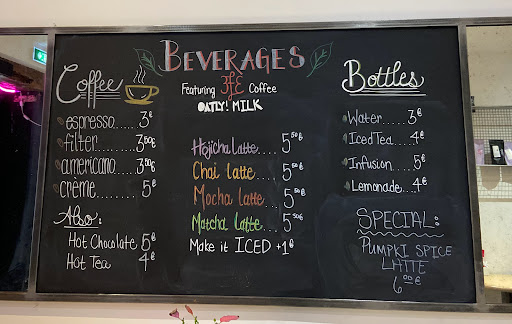 BEVERAGES
Featuring Coffee
OATLY! MILK
Coffee
espresso...... 3€
filter........ 3,50€
americano.... 3,50€
crème........ 5€
Also:
Hot Chocolate 5€
Hot Tea 4€
Hojicha Latte.... 5,50€
Chai latte.... 5,50€
Mocha latte... 5,50€
Matcha latte.. 5,50€
Make it ICED +1€
Bottles
Water...... 3€
Iced Tea.... 4€
Infusion.... 5€
Lemonade.... 4€
SPECIAL:
PUMPKI SPICE
LATTE
6,00€